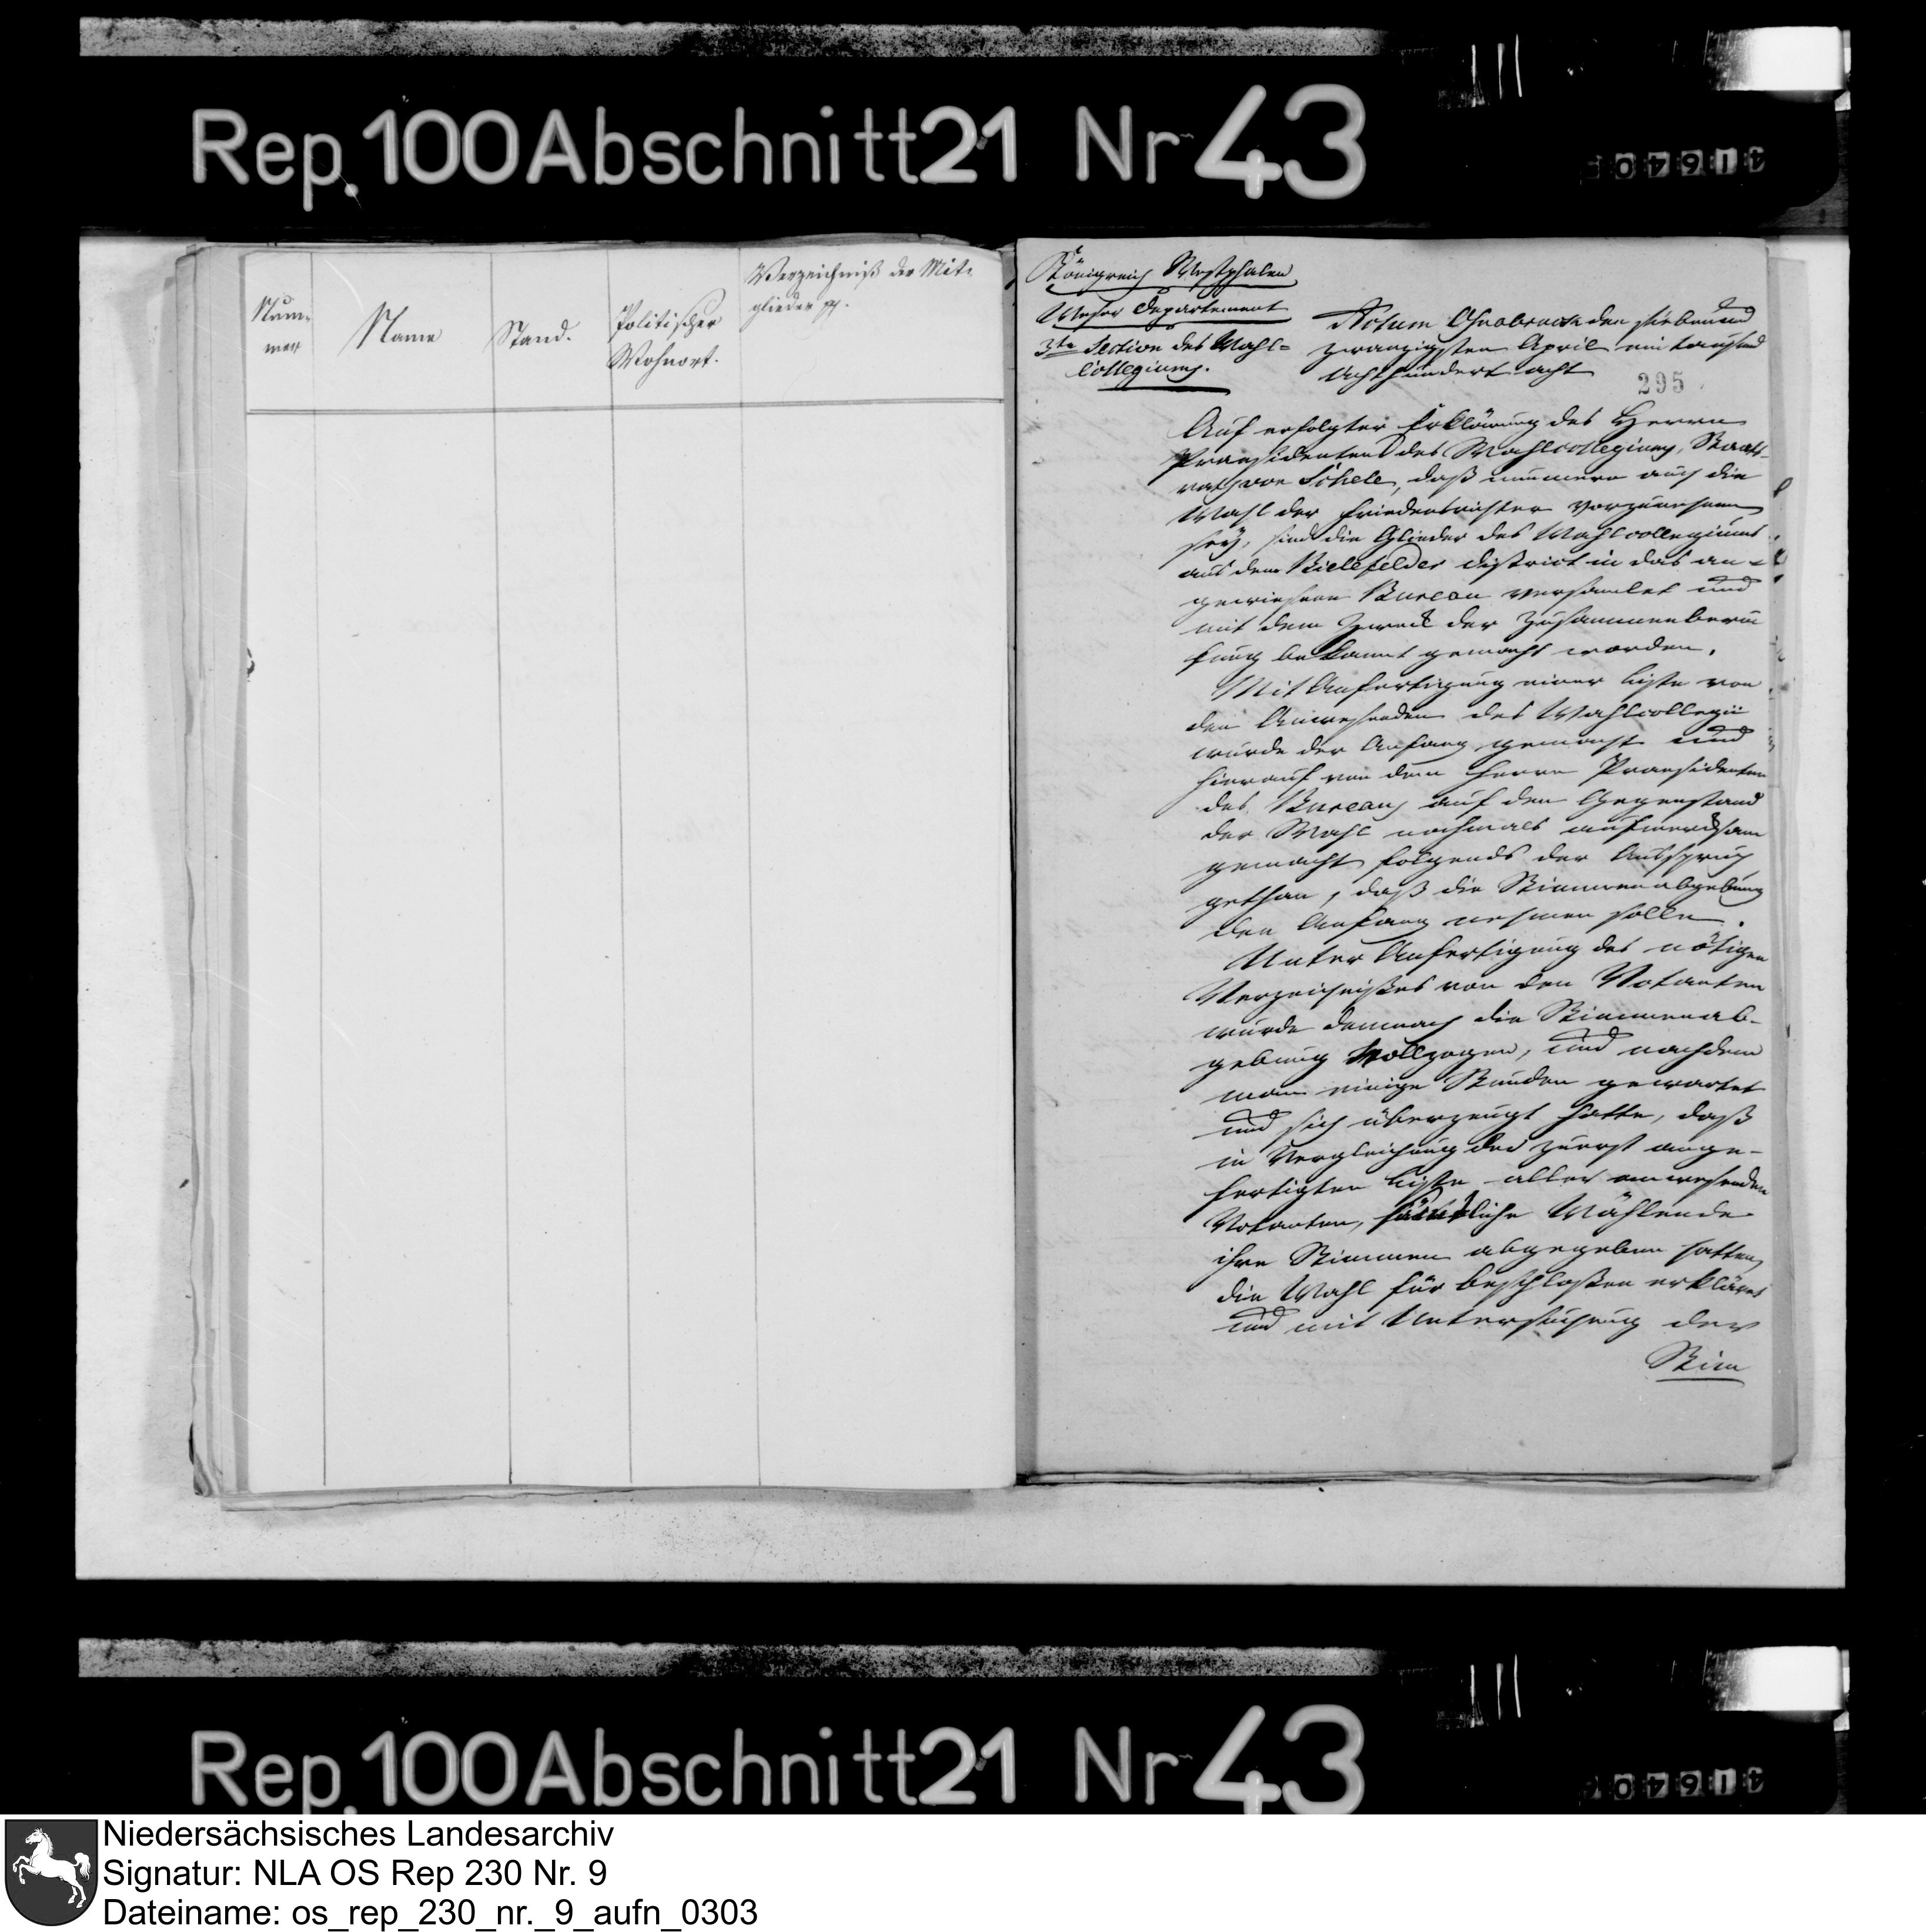 Rep. 100 Abschnitt 21 Nr 43
Num-
mer
Name
Stand.
Politischer
Wohnort.
Verzeichniß der Mit-
glieder pp.
Königreich Westphalen
Weser Departement
3te Section des Wahl=
Collegiums.
Actum Osnabrück den sieben und
zwanzigsten April ein tausend
Achthundert acht
295
Auf erfolgter Erklärung des Herrn
Praesidenten des Wahlcollegiums, Staats-
rath von Schele, daß nunmero auch die
Wahl der Friedensrichter vorzunehmen
sey, sind die Glieder des Wahlcollegiums
aus dem Bielefelder District in das an-
gewiesene Bureau versamlet und
mit dem Zweck der Zusammenberu
fung bekannt gemacht worden.
Mit Anfertigung einer Liste von
den Anwesenden des Wahlcollegii
wurde der Anfang gemacht und
hierauf von dem Herrn Praesidenten
des Bureaus auf den Gegenstand
der Wahl nochmals aufmerksam
gemacht folgends der Ausspruch
gethan, daß die Stimmenabgebung
den Anfang nehmen solle.
Unter Anfertigung des nötigen
Verzeichnißes von den Votanten
wurde demnach die Stimmenab-
gebung vollzogen, und nachdem
man einige Stunden gewartet
und sich überzeugt hatte, daß
in Vergleichung der zuerst ange-
fertigten Liste aller anwesenden
Votanten, sämtliche Wählende
ihre Stimmen abgegeben hatten,
die Wahl für beschloßen erkläret
und mit Untersuchung der
Stim
Rep. 100 Abschnitt 21 Nr 43
Niedersächsisches Landesarchiv
Signatur: NLA OS Rep 230 Nr. 9
Dateiname: os_rep_230_nr._9_aufn_0303